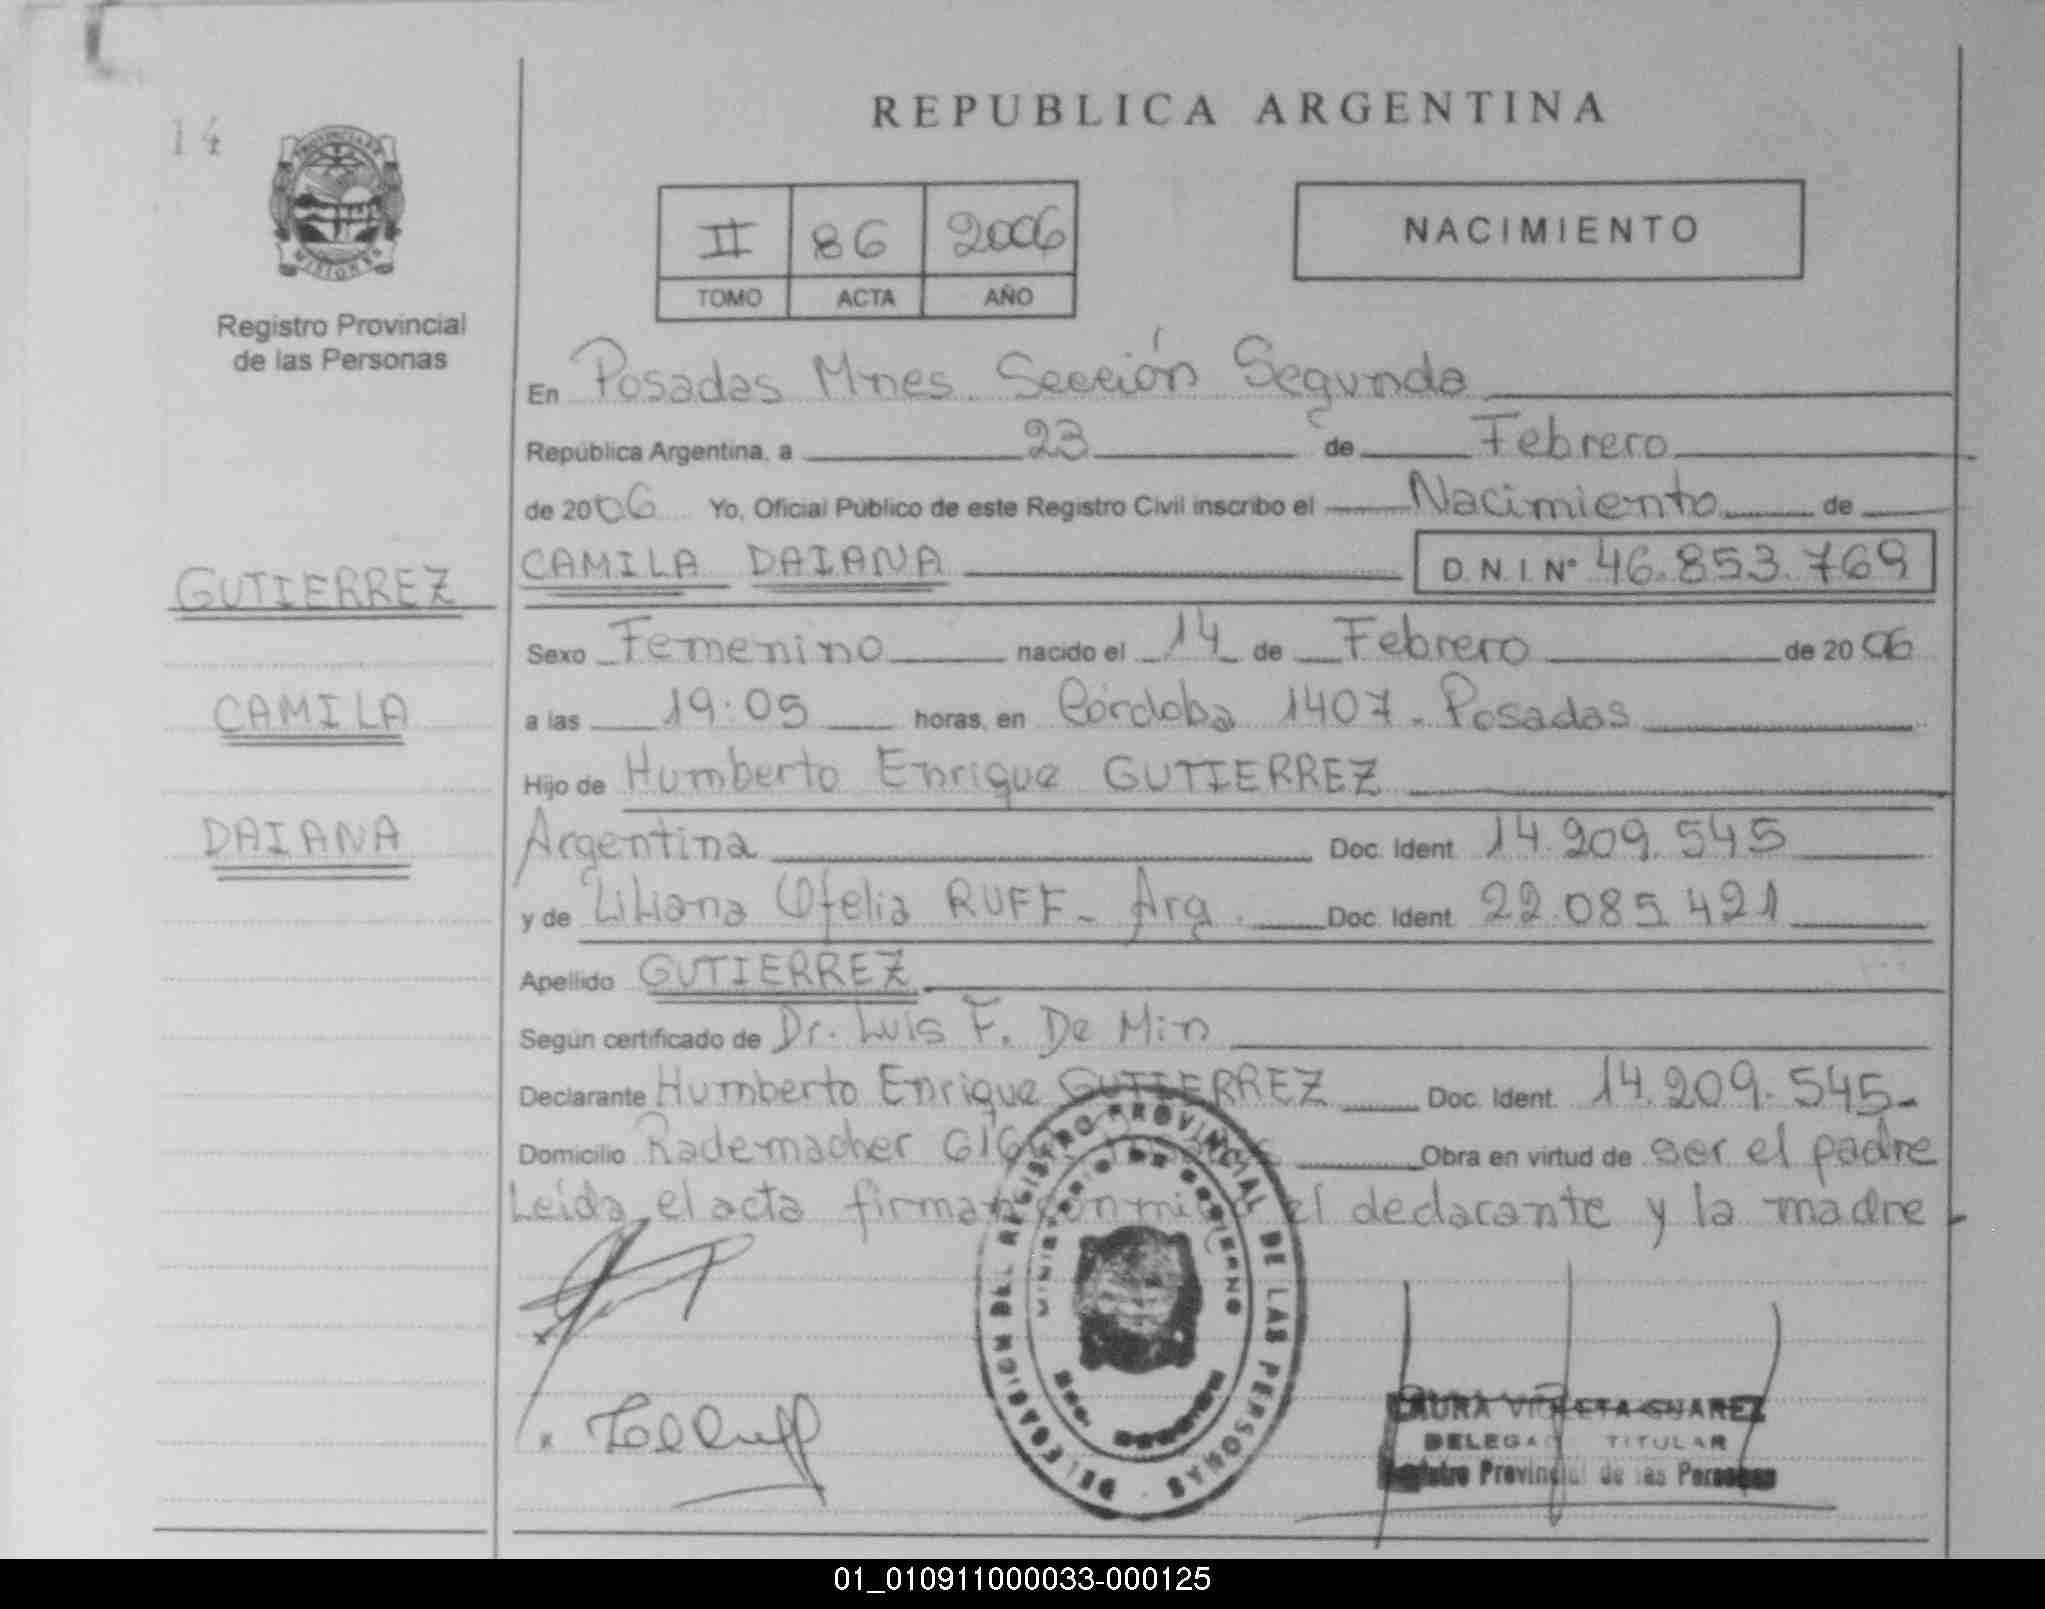 14
REPUBLICA ARGENTINA
PROVINCIA DE
MISIONES
Registro Provincial
de las Personas
II 86 2006
TOMO ACTA AÑO
NACIMIENTO
En Posadas Mnes. Sección Segunda
República Argentina, a 23 de Febrero
de 2006 Yo, Oficial Público de este Registro Civil inscribo el Nacimiento de
GUTIERREZ
CAMILA
DAIANA
CAMILA DAIANA D.N.I. Nº 46.853.769
Sexo Femenino nacido el 14 de Febrero de 2006
a las 19.05 horas, en Córdoba 1407. Posadas
Hijo de Humberto Enrique GUTIERREZ
Argentina Doc. Ident. 14.209.545
y de Liliana Ofelia RUFF - Arg. Doc. Ident. 22.085.421
Apellido GUTIERREZ
Según certificado de Dr. Luis F. De Min
Declarante Humberto Enrique GUTIERREZ Doc. Ident. 14.209.545-
Domicilio Rademacher Obra en virtud de ser el padre
Leída el acta firman conmigo el declarante y la madre
DELEGACION DEL REGISTRO PROVINCIAL DE LAS PERSONAS
MINISTERIO DE GOBIERNO
MISIONES
LAURA VIOLETA SUAREZ
DELEGADA TITULAR
Registro Provincial de las Personas
01_010911000033-000125